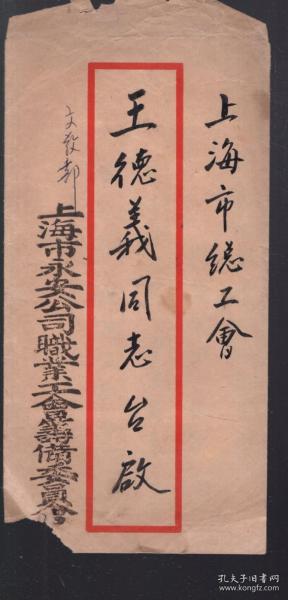 上海市總工會
王德義同志台啟
文教部
上海市永安公司職業工會籌備委員會
孔夫子旧书网
www.kongfz.com